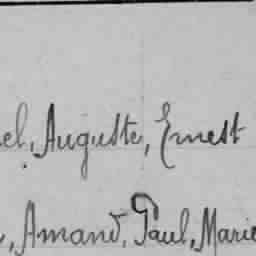 el, Auguste, Ernest
, Amand, Paul, Marie